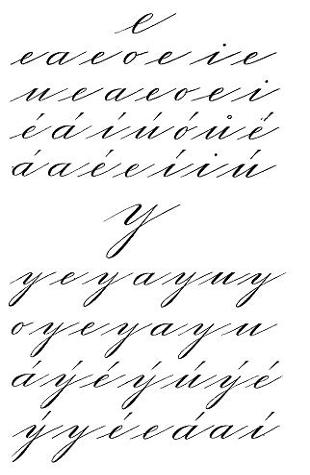 e
e a e o e i e
u e a e o e i
é á í ú ó ů ë
á a é e í i ú
y
y e y a y u y
o y e y a y u
á ý é ý ú ý é
ý y é e á a í